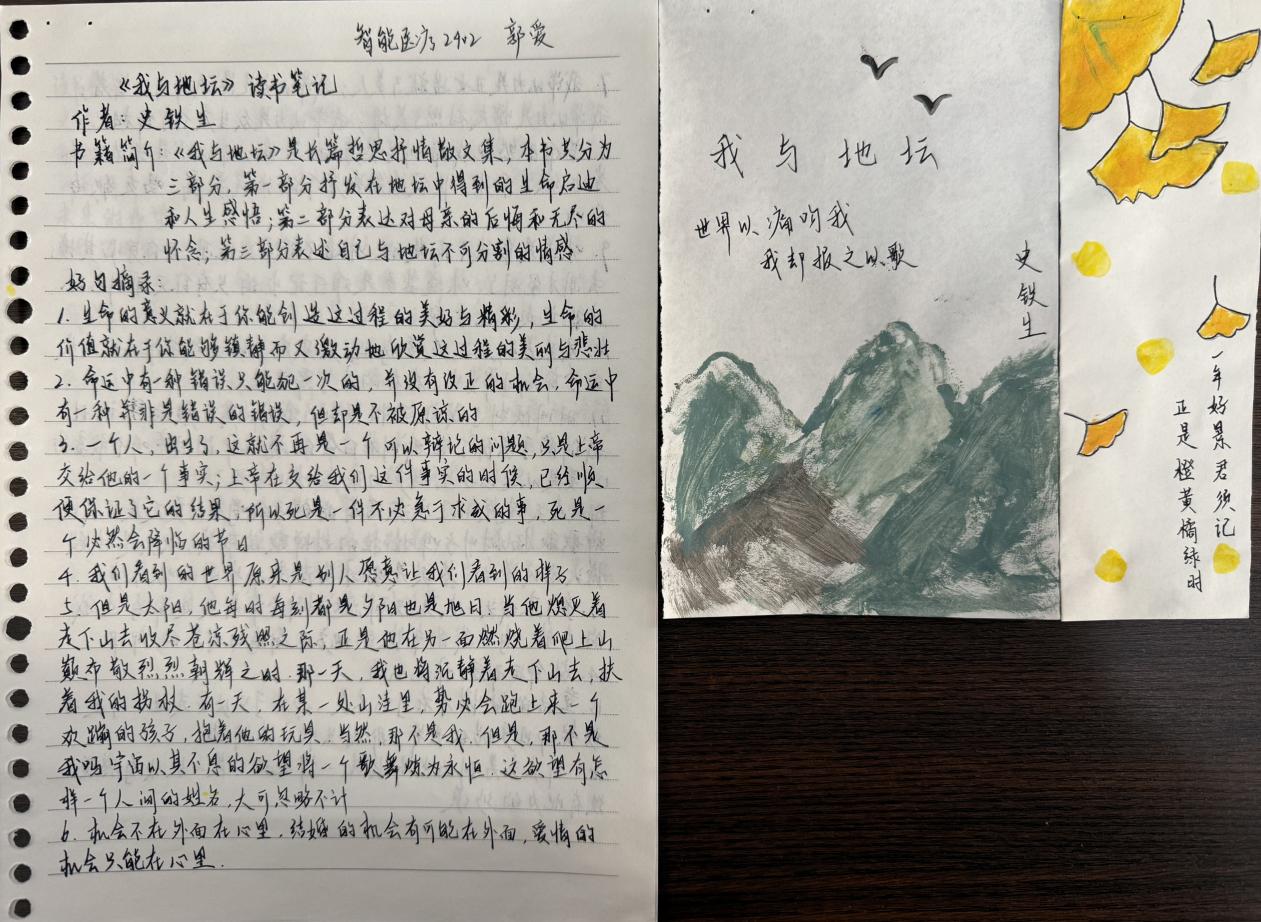 智能医疗2402 郭爱
《我与地坛》读书笔记
作者：史铁生
书籍简介：《我与地坛》是长篇哲思抒情散文集，本书共分为
三部分，第一部分抒发在地坛中得到的生命启迪
和人生感悟；第二部分表达对母亲的后悔和无尽的
怀念；第三部分表述自己与地坛不可分割的情感
好句摘录
1. 生命的意义就在于你能创造这过程的美好与精彩，生命的
价值就在于你能够镇静而又激动地欣赏这过程的美丽与悲壮
2. 命运中有一种错误只能犯一次的，并没有改正的机会，命运中
有一种并非是错误的错误，但却是不被原谅的
3. 一个人，出生了，这就不再是一个可以辩论的问题，只是上帝
交给他的一个事实；上帝在交给我们这件事实的时候，已经顺
便保证了它的结果，所以死是一件不必急于求成的事，死是一
个必然会降临的节日
4. 我们看到的世界原来是别人愿意让我们看到的样子
5. 但是太阳，他每时每刻都是夕阳也是旭日。当他熄灭着
走下山去收尽苍凉残照之际，正是他在另一面燃烧着爬上山
巅布散烈烈朝辉之时。那一天，我也将沉静着走下山去，扶
着我的拐杖。有一天，在某一处山洼里，势必会跑上来一个
欢蹦的孩子，抱着他的玩具。当然，那不是我。但是，那不是
我吗宇宙以其不息的欲望将一个歌舞炼为永恒。这欲望有怎
样一个人间的姓名，大可忽略不计
6. 机会不在外面在心里，结婚的机会有可能在外面，爱情的
机会只能在心里.
我与地坛
世界以痛吻我
我却报之以歌
史铁生
一年好景君须记
正是橙黄橘绿时